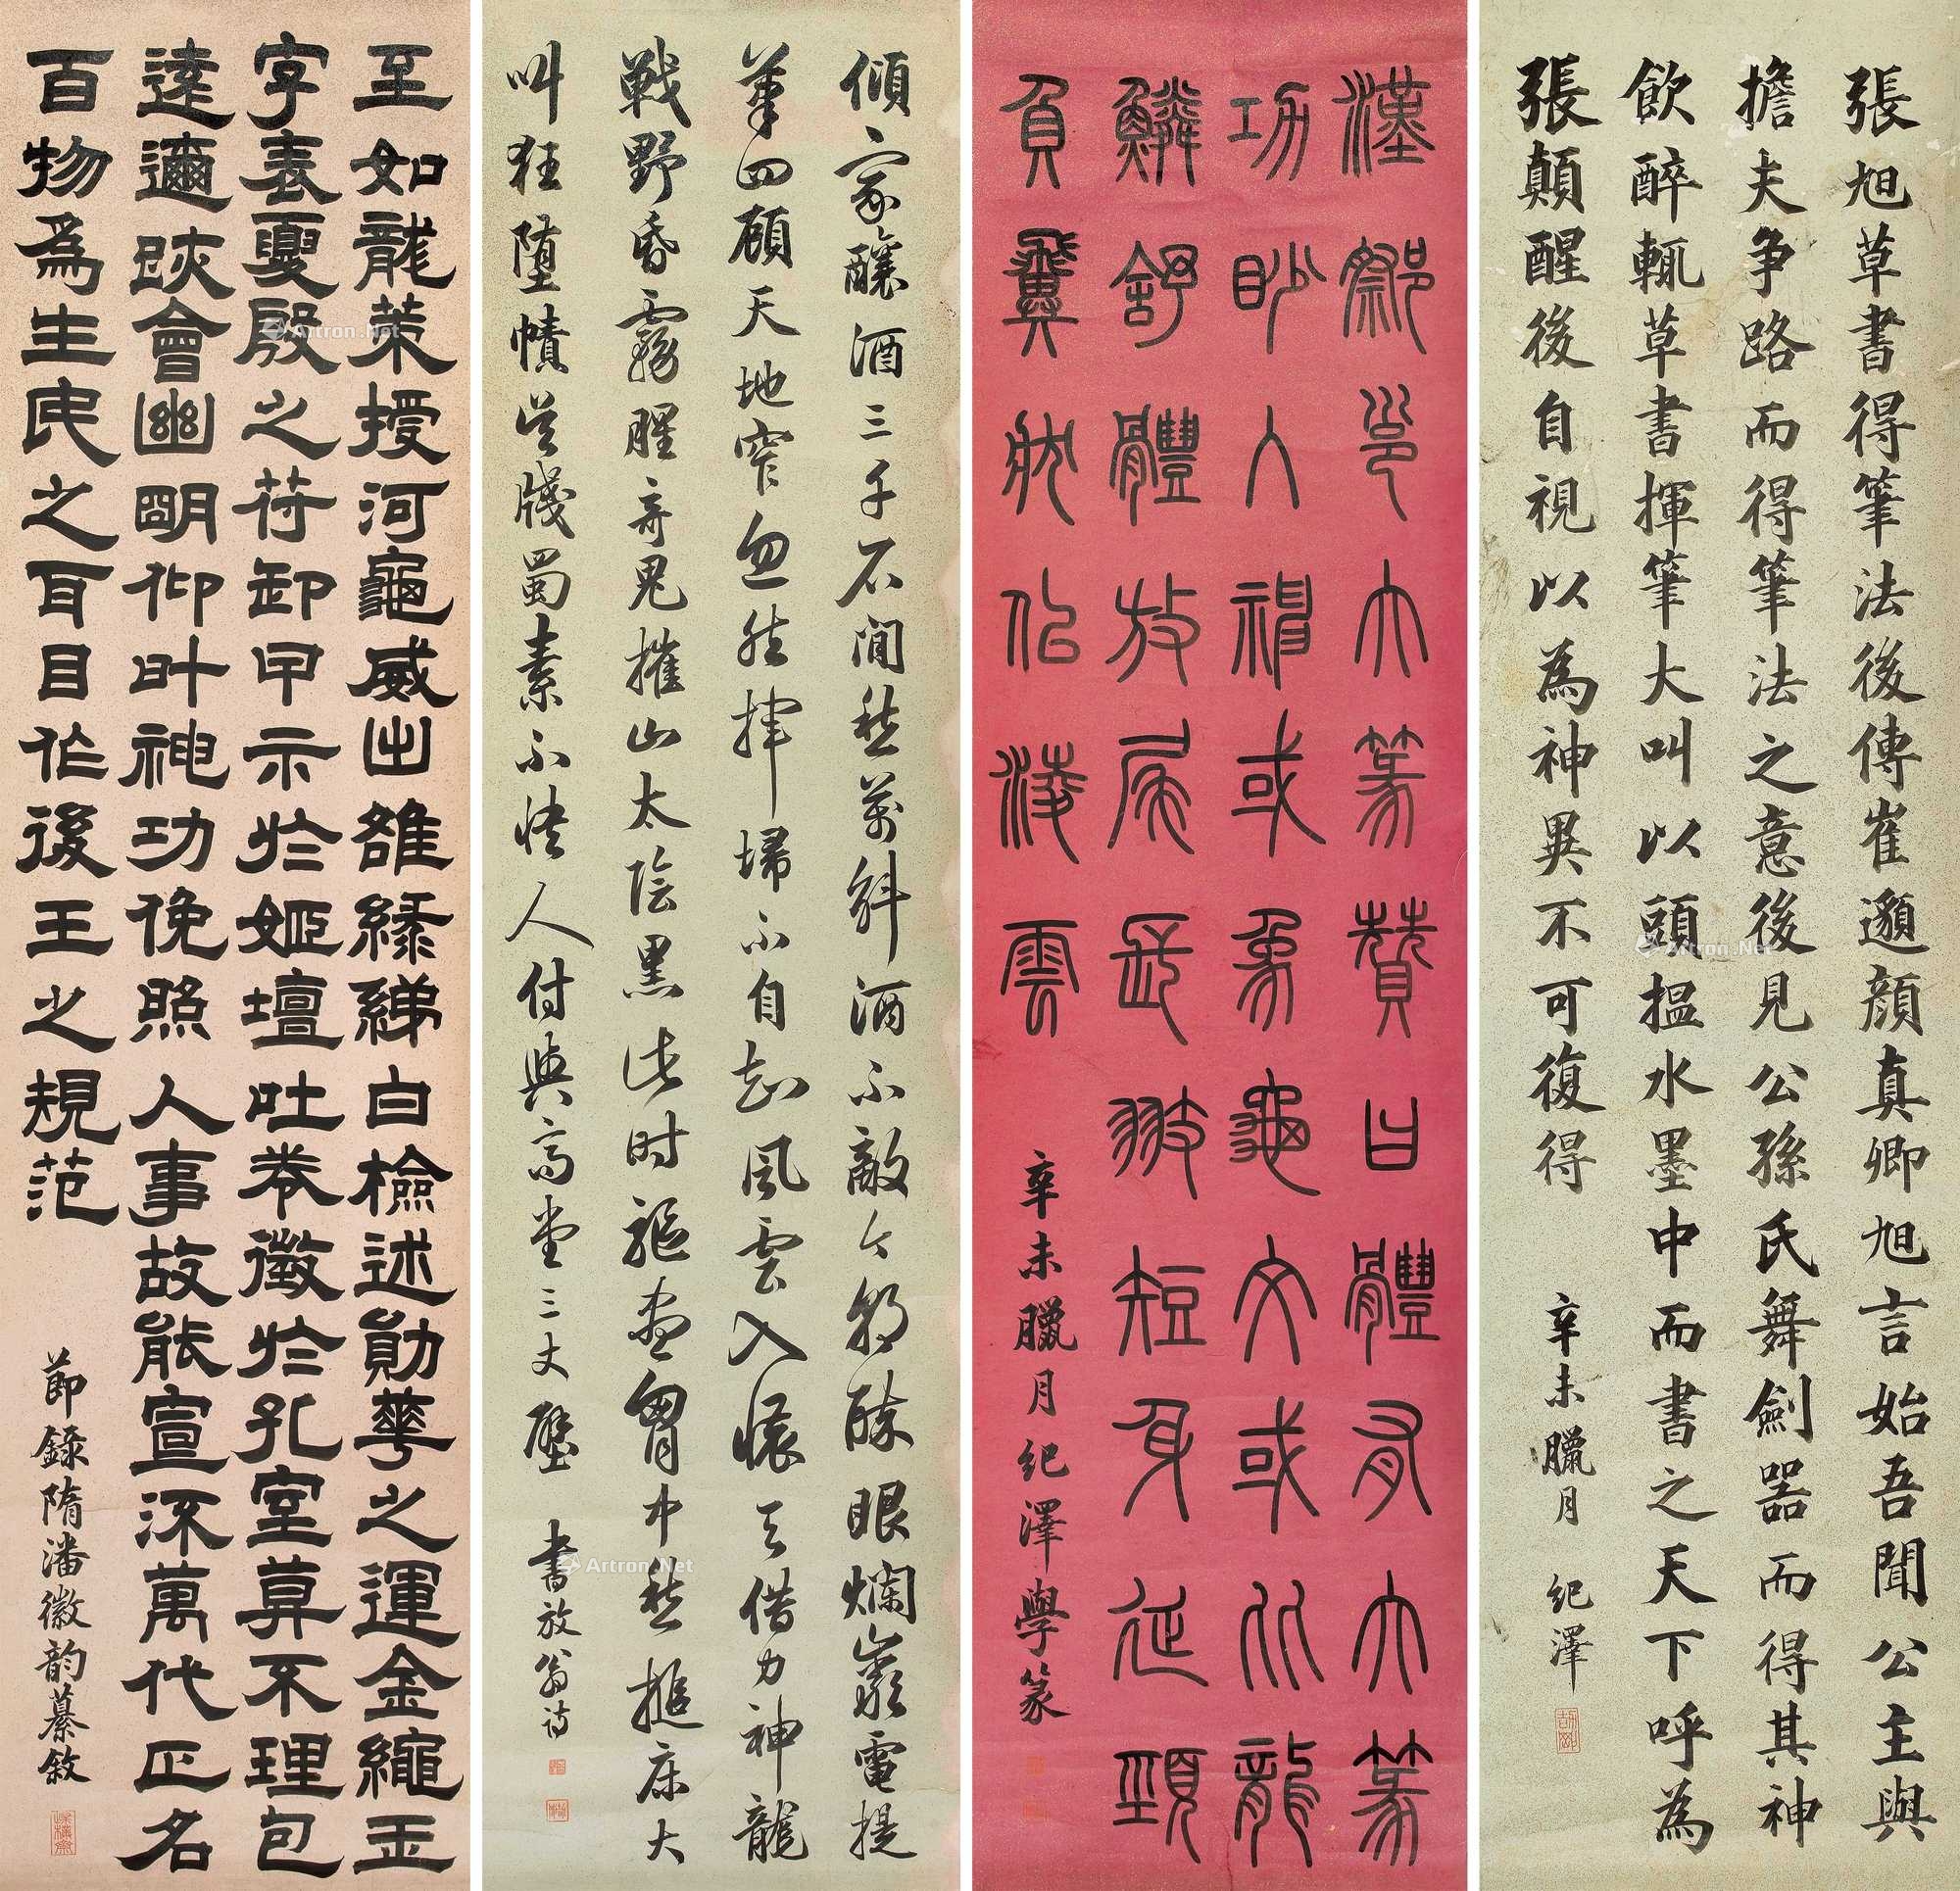 張旭草書得筆法後傳崔邈顔真卿旭言始吾聞公主與
擔夫争路而得筆法之意後見公孫氏舞劍器而得其神
飲醉輒草書揮筆大叫以頭揾水墨中而書之天下呼為
張顛醒後自視以為神異不可復得
辛未臘月 紀澤
漢蔡邕大篆贊曰體有大篆
功妙入神或象龜文或比龍
鱗舒體放尾長翅短身延頸
負翼狀似凌雲
辛未臘月紀澤學篆
傾家釀酒三千石閒愁萬斛酒不敵今朝醉眼爛巖電提
筆四顧天地窄忽然揮埽不自知風雲入懷天借力神龍
戰野昏霧腥奇鬼摧山太陰黑此时驅盡胷中愁搥床大
叫狂墮幘吴牋蜀素不快人付與高堂三丈壁
書放翁诗
至如龍策授河龜威出雒綠綈白檢述勛華之運金繩玉
字表夏殷之符卸甲示於姬壇吐卷徵於孔室莫不理包
遠邇跡會幽明仰叶神功俛照人事故能宣流萬代正名
百物為生民之耳目作後王之規范
節錄隋潘徽韵纂敘
Artron.Net
Artron.Net
Artron.Net